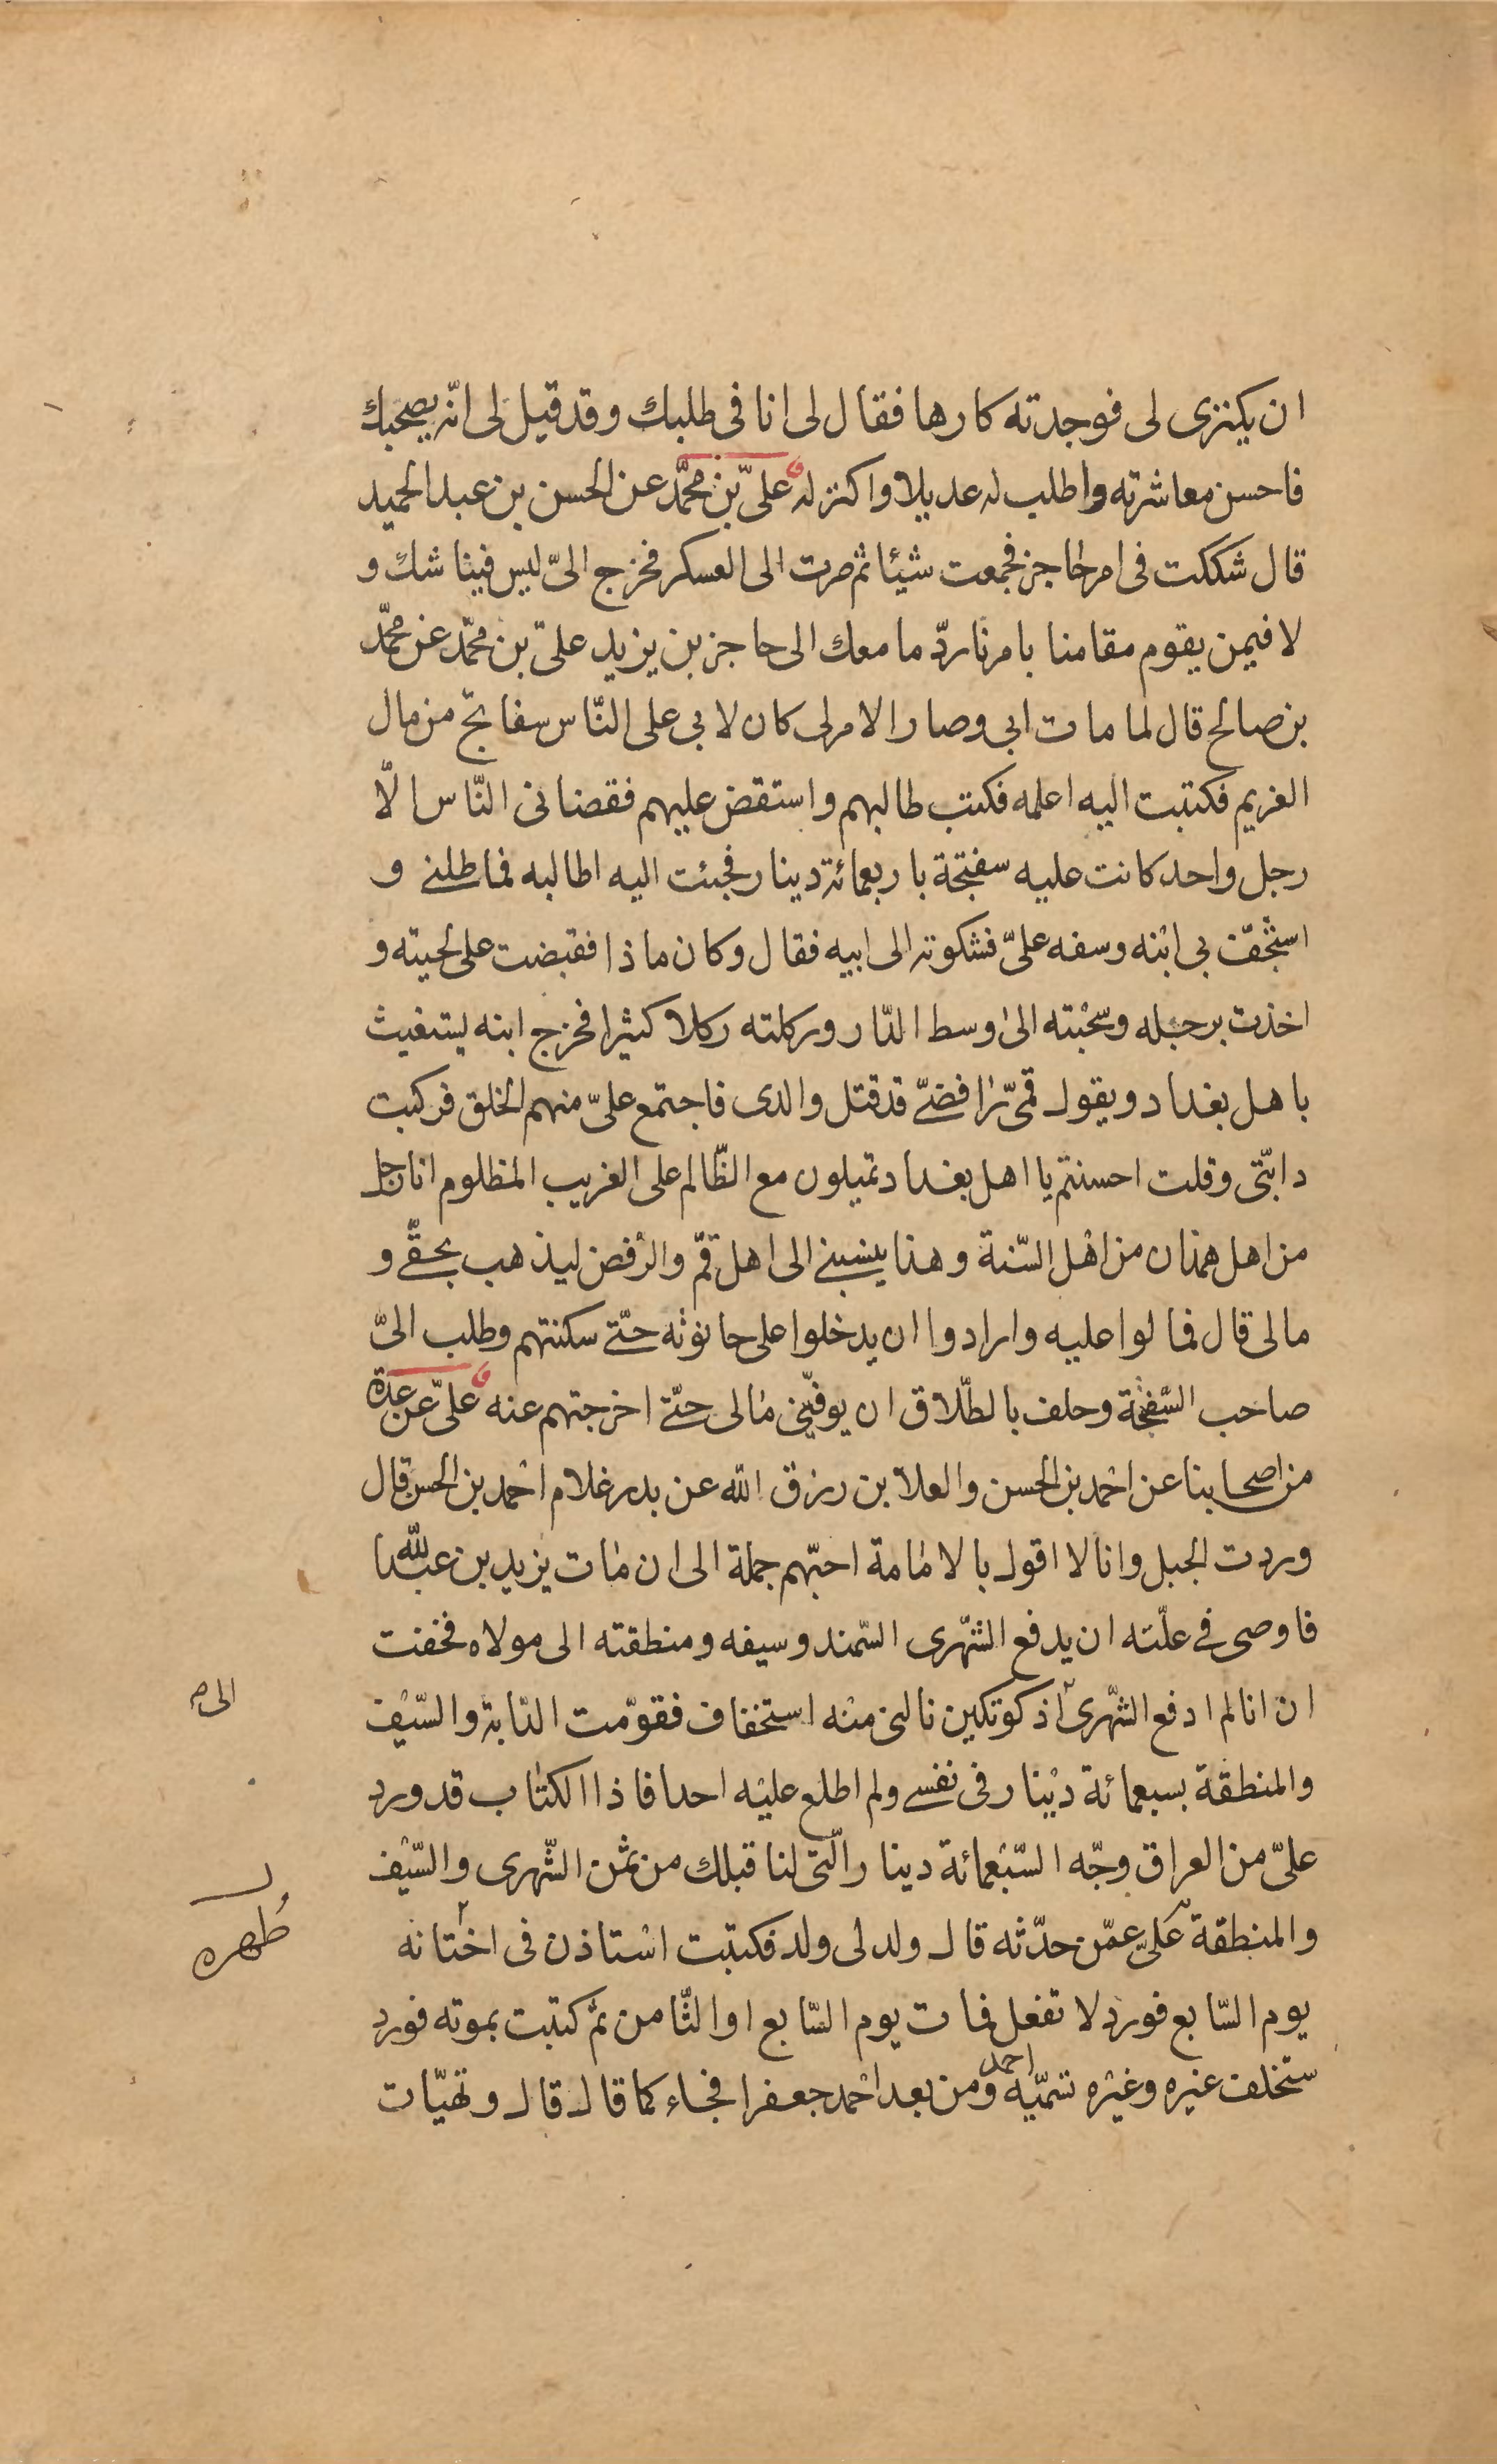 ان يكتری لی فوجدته كارها فقال لی انا فی طلبك وقد قيل لی انّه يصحبك
فاحسن معاشرته واطلب له عديلا واكتر له علیّ بن محمّد عن الحسن بن عبد الحميد
قال شككت فی امر حاجز فجمعت شيئا ثم صرت الی العسكر فخرج الیّ ليس فينا شك و
لا فيمن يقوم مقامنا بامرنا ردّ ما معك الی حاجز بن يزيد علیّ بن محمّد عن محمّد
بن صالح قال لما مات ابی وصار الامر لی كان لابی علی النّاس سفاتج من مال
الغريم فكتبت اليه اعلمه فكتب طالبهم واستقض عليهم فقضانی النّاس الّا
رجل واحد كانت عليه سفتجة باربعمائة دينار فجئت اليه اطالبه فماطلنے و
استخفّ بی ابنه وسفه علیّ فشكوته الی ابيه فقال وكان ماذا فقبضت علی لحيته و
اخذت برجله وسحبته الیٰ وسط الدّار وركلته ركلا كثيرا فخرج ابنه يستغيث
باهل بغداد ويقول قمّیّ رافضیّ قد قتل والدی فاجتمع علیّ منهم الخلق فركبت
دابّتی وقلت احسنتم يا اهل بغداد تميلون مع الظّالم علی الغريب المظلوم انا رجل
من اهل همذان من اهل السّنة وهذا ينسبنے الی اهل قمّ والرّفض ليذهب بحقّے و
مالی قال فمالوا عليه وارادوا ان يدخلوا علی حانوته حتّے سكنتهم وطلب الیّ
صاحب السّفتجة وحلف بالطّلاق ان يوفّينی مالی حتّے اخرجتهم عنه علیّ عن عدة
من اصحابنا عن احمد بن الحسن والعلا بن رزق اللّه عن بدر غلام احمد بن الحسن قال
وردت الجبل وانا لا اقول بالامامة احبّهم جملة الی ان مات يزيد بن عبد اللّه
فاوصی فے علّته ان يدفع الشّهری السّمند وسيفه ومنطقته الی مولاه فخفت
ان انا لم ادفع الشّهری اذكوتكين نالنی منه استخفاف فقوّمت الدّابة والسّيف
الی
والمنطقة بسبعمائة دينار فی نفسے ولم اطلع عليه احدا فاذا الكتاب قد ورد
علیّ من العراق وجّه السّبعمائة دينار الّتی لنا قبلك من ثمن الشّهری والسّيف
والمنطقة علیّ عمّن حدّثه قال ولد لی ولد فكتبت استاذن فی اختانه
طهره
يوم السّابع فورد لا تفعل فمات يوم السّابع او الثّامن ثم كتبت بموته فورد
ستخلف غيره وغيره تسمّيه احمد ومن بعد احمد جعفرا فجاء كما قال قال وتهيّات